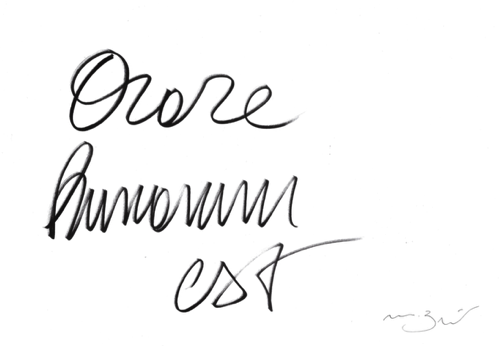 Orare
humanum
est